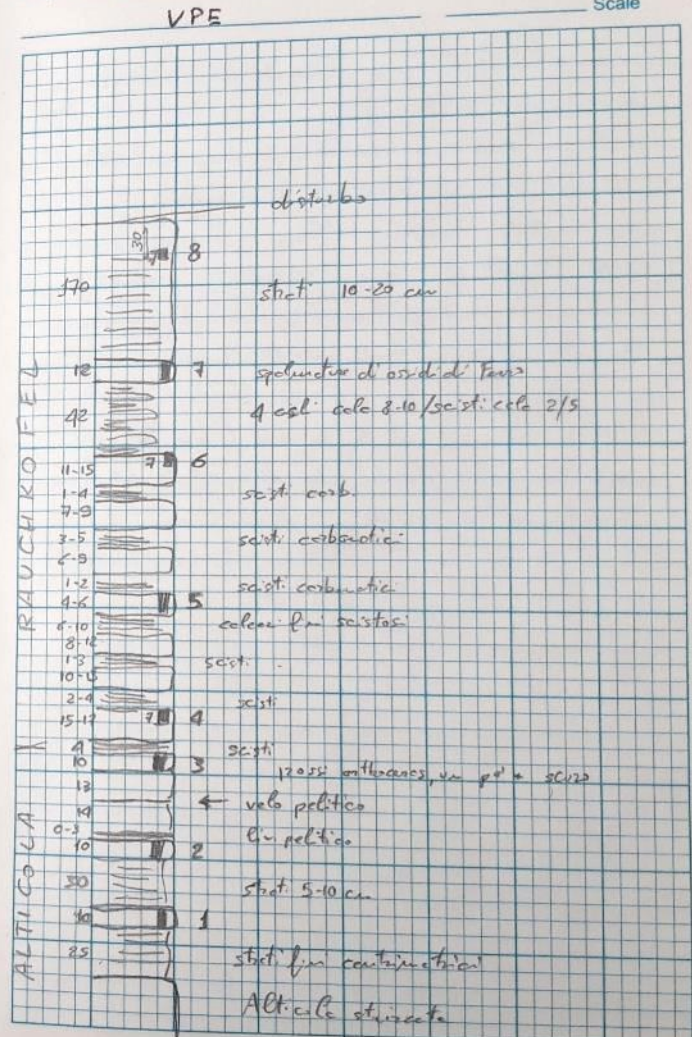 VPE
Scale
disturbo
30
8
170
strati 10-20 cm
12 7 spalmature d'ossidi di Ferro
42 4 calc 8-10/scisti calc 2/5
11-15 7 6
1-4 scisti carb.
7-9
3-5 scisti carbonatici
6-9
1-2 scisti carbonatici
4-6 5
6-10 calcari fini scistosi
8-12
1-3 scisti
10-15
2-4 scisti
15-17 7 4
4 scisti
10 3 grossi orthoceras, un po' + scuro
13
14 ← velo pelitico
0-3 liv. pelitico
10 2
50 strati 5-10 cm
10 1
25 strati fini centimetrici
Alticola
RAUCHKOFEL
ALTICOLA